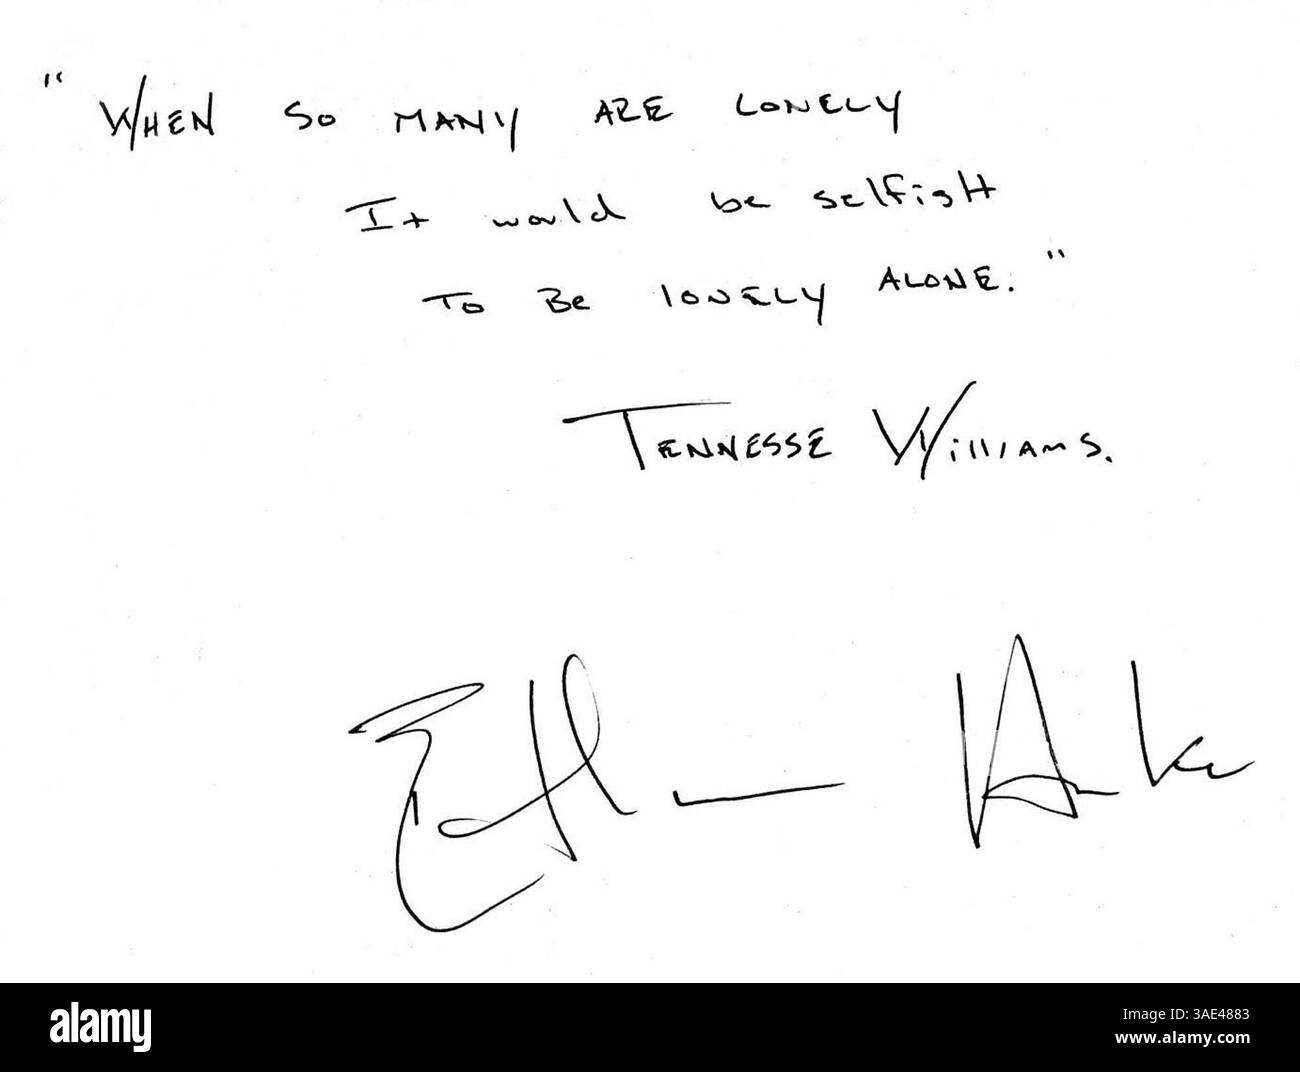 "WHEN SO MANY ARE LONELY
It would be selfish
TO BE lONELY ALONE."
TENNESSE WilliAMS.
Ethan Hawke
alamy
Image ID: 3AE4883
www.alamy.com